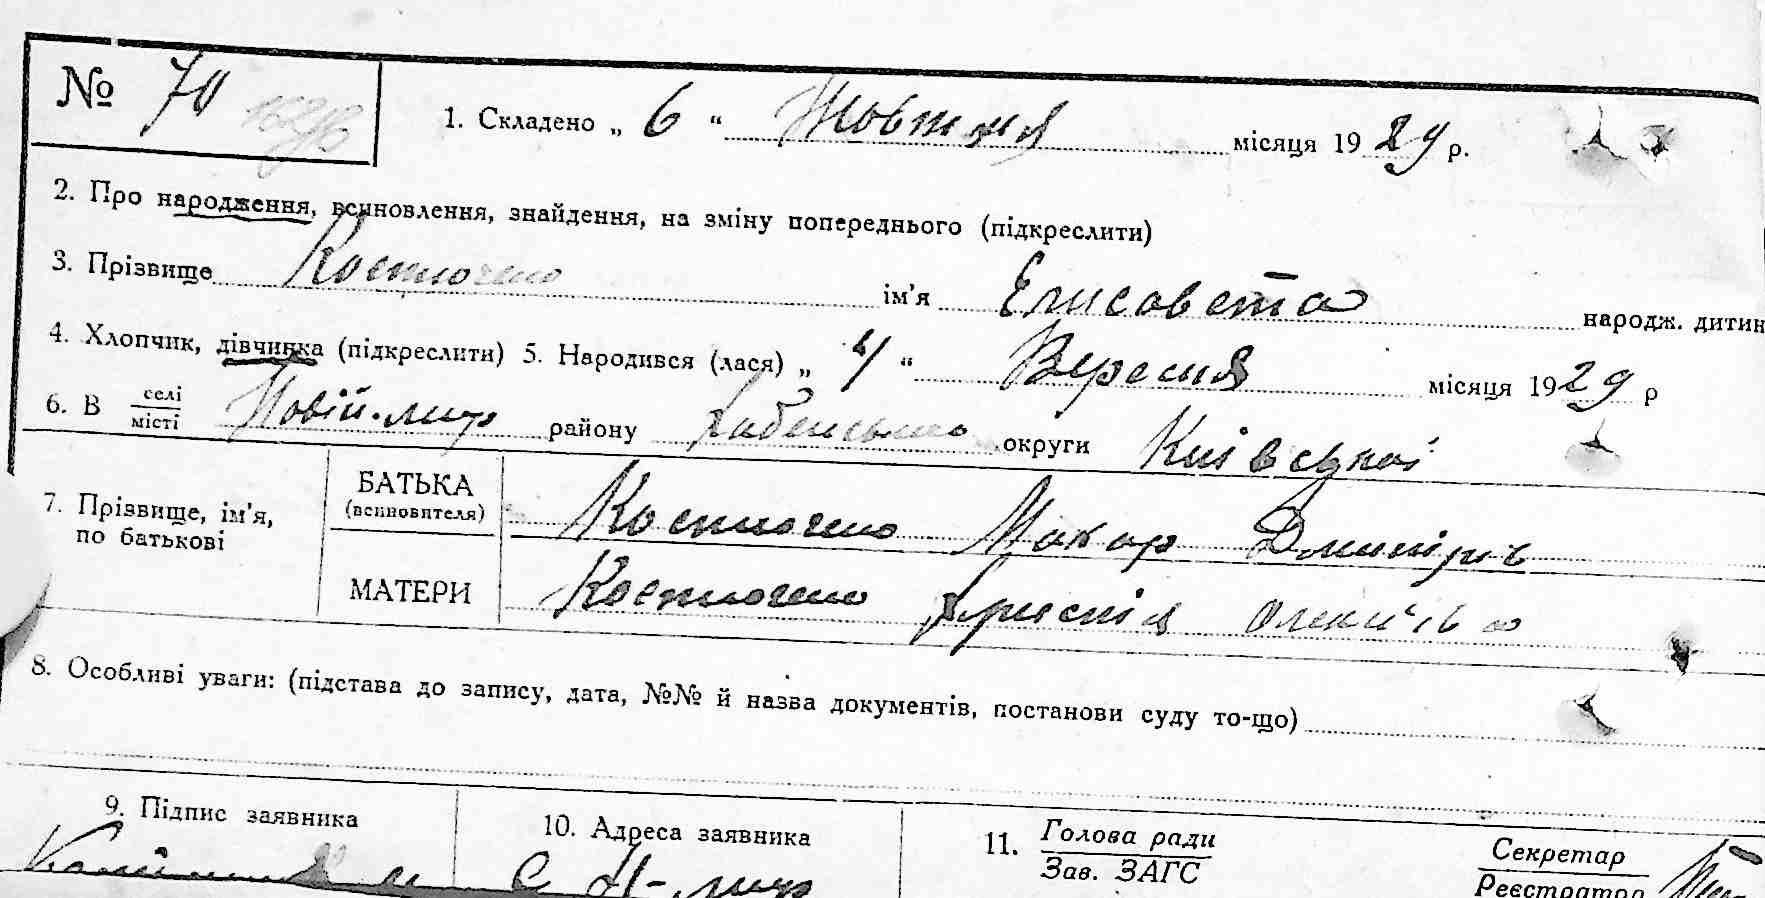 № 70
1. Складено „ 6 “ Жовтня місяця 1929 р.
2. Про народження, всиновлення, знайдення, на зміну попереднього (підкреслити)
3. Прізвище Костюченко ім'я Елисовета народж. дитин
4. Хлопчик, дівчинка (підкреслити) 5. Народився (лася) „ 4 “ Вересня місяця 1929 р
6. В селі місті Новій-мир району Хабенського округи Київської
7. Прізвище, ім'я, по батькові
БАТЬКА (всиновителя) Костюченко Макар Дмитрів
МАТЕРИ Костюченко Христія Олексіїва
8. Особливі уваги: (підстава до запису, дата, №№ й назва документів, постанови суду то-що)
9. Підпис заявника
10. Адреса заявника
11. Голова ради Секретар
Зав. ЗАГС Реєстратор
с Н-мир